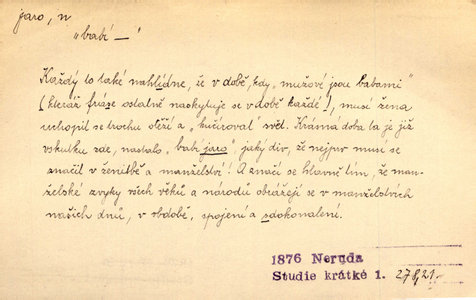 jaro, n
„babí —‘
Každý to také nahlídne, že v době, kdy „mužové jsou babami“
(kterář fráse ostatně naskytuje se v době každé!), musí žena
uchopit se trochu otěží a „kučírovat“ svět. Krásná doba ta je již
vskutku zde, nastalo „babí jaro“, jaký div, že nejprv musí se
značit v ženitbě a manželství! A značí se hlavně tím, že man-
želské zvyky všech věků a národů obrážejí se v manželstvích
našich dnů, v obdobě, spojení a zdokonalení.
1876 Neruda
Studie krátké 1. 278,21.